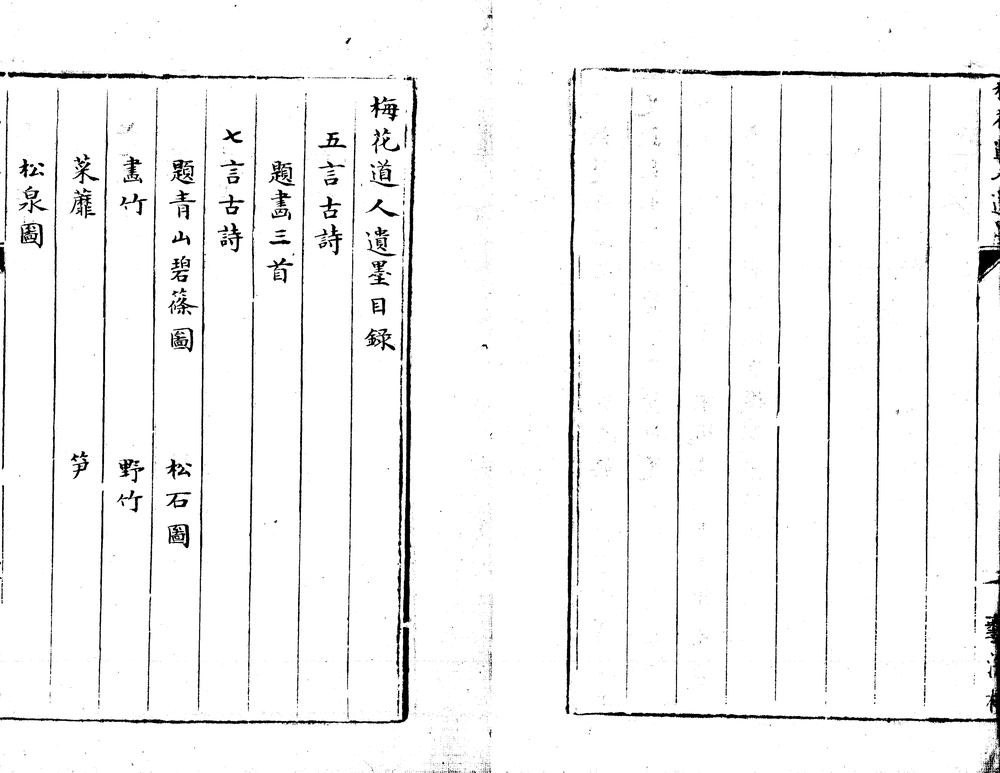 梅花道人遺墨目錄
五言古詩
題畫三首
七言古詩
題青山碧篠圖　松石圖
畫竹　野竹
菜蘼　笋
松泉圖